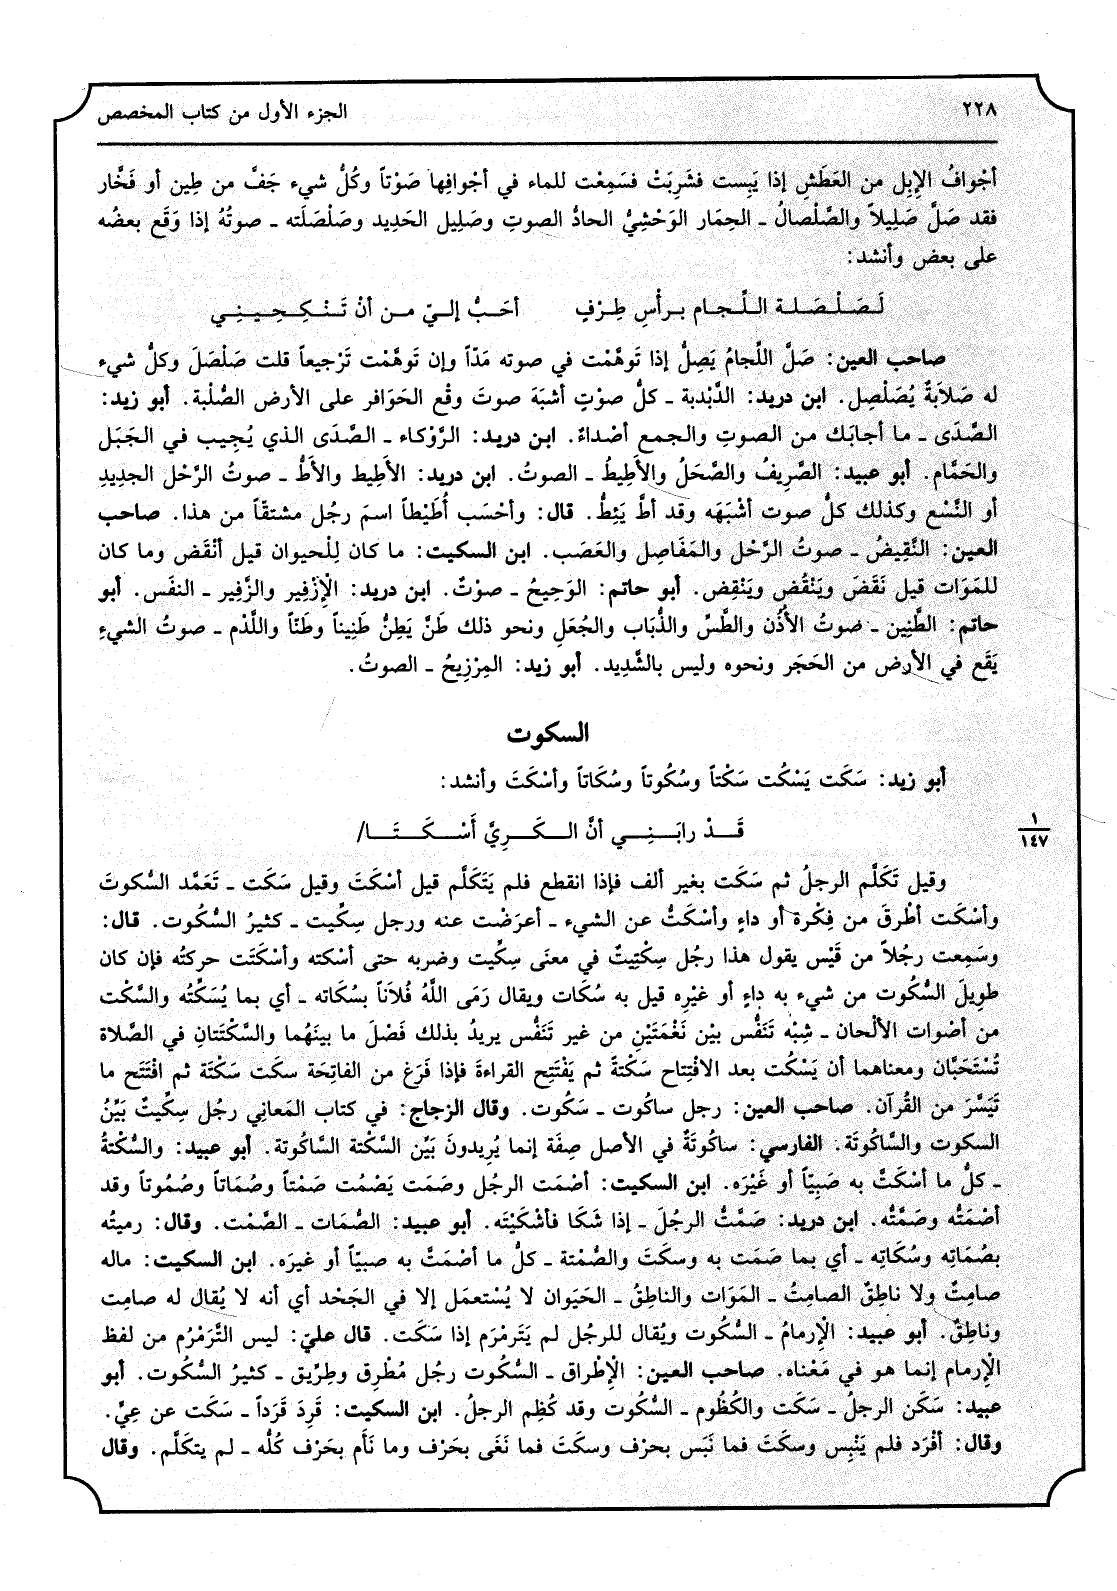 ٢٢٨
الجزء الأول من كتاب المخصص
أجْوافُ الإبِل من العَطَشِ إذا يَبِست فشَرِبَتْ فسَمِعْت للماء في أجْوافِها صَوْتاً وكُلُّ شيء جَفَّ من طِين أو فَخَّار
فقد صَلَّ صَلِيلاً والصَّلْصالُ ـ الحِمَار الوَحْشِيُّ الحادُّ الصوتِ وصَلِيل الحَدِيد وصَلْصَلَته ـ صوتُهُ إذا وَقَع بعضُه
على بعض وأنشد:
لَـصَـلْـصَـلـة الـلِّـجـام بـرأْسِ طِـرْفٍ أحَـبُّ إلـيّ مـن أنْ تَـنْـكِـحِـيـنِـي
صاحب العين: صَلَّ اللِّجامُ يَصِلُّ إذا تَوهَّمْت في صوته مَدّاً وإن تَوهَّمْت تَرْجيعاً قلت صَلْصَلَ وكلُّ شيء
له صَلابَةٌ يُصَلْصِل. ابن دريد: الدَّبْدبة ـ كلُّ صوْتٍ أشبَهَ صوتَ وقْع الحَوَافر على الأرض الصُّلْبة. أبو زيد:
الصَّدَى ـ ما أجابَك من الصوتِ والجمع أصْداءٌ. ابن دريد: الرَّوْكاء ـ الصَّدَى الذي يُجِيب في الجَبَل
والحَمَّام. أبو عبيد: الصَّرِيفُ والصَّحَلُ والأَطِيطُ ـ الصوتُ. ابن دريد: الأَطِيط والأَطُّ ـ صوتُ الرَّحْل الجديدِ
أو النَّسْع وكذلك كلُّ صوت أشْبَهَه وقد أطَّ يَئِطُّ. قال: وأحْسَب أُطَيْطاً اسمَ رجُل مشتقّاً من هذا. صاحب
العين: النَّقِيضُ ـ صوتُ الرَّحْل والمَفَاصِل والعَصَب. ابن السكيت: ما كان لِلْحيوان قيل أنْقَض وما كان
للمَوَات قيل نَقَضَ ويَنْقُض ويَنْقِض. أبو حاتم: الوَحِيحُ ـ صوْتٌ. ابن دريد: الْإزْفِير والزَّفِير ـ النفَس. أبو
حاتم: الطَّنِين ـ صوتُ الأذُن والطَّسِّ والذُّبَاب والجُعَلِ ونحو ذلك طَنَّ يَطِنُّ طَنِيناً وطَنّاً واللَّذْم ـ صوتُ الشيءِ
يَقَع في الأرض من الحَجَر ونحوه وليس بالشَّدِيد. أبو زيد: المِرْزِيحُ ـ الصوتُ.
السكوت
أبو زيد: سَكَت يَسْكُت سَكْتاً وسُكُوتاً وسُكَاتاً وأسْكَتَ وأنشد:
قَـدْ رابَـنِـي أنَّ الـكَـرِيَّ أَسْـكَـتَـا/
١
١٤٧
وقيل تَكَلَّم الرجلُ ثم سَكَت بغير ألف فإذا انقطع فلم يَتَكَلَّم قيل أسْكَتَ وقيل سَكَت ـ تَعَمَّد السُّكوتَ
وأسْكَت أطْرقَ من فِكْرة أو داءٍ وأسْكَتُّ عن الشيء ـ أعرَضْت عنه ورجل سِكِّيت ـ كثيرُ السُّكُوت. قال:
وسَمِعت رجُلاً من قَيْس يقول هذا رجُل سِكْتِيتٌ في معنَى سِكِّيت وضربه حتى أسْكته وأسْكَتَت حركتُه فإن كان
طوِيلَ السُّكُوت من شيء به داءٍ أو غيْرِه قيل به سُكَات ويقال رَمَى اللَّهُ فُلاَناً بسُكَاته ـ أي بما يُسَكْتُه والسَّكْت
من أصْوات الألْحان ـ شِبْه تَنَفُّس بيْن نَغْمَتَيْنِ من غير تَنَفُّس يريدُ بذلك فَصْلَ ما بينَهُما والسَّكْتَتانِ في الصَّلاة
تُسْتَحَبَّان ومعناهما أن يَسْكُت بعد الافْتِتاح سَكْتةً ثم يَفْتَتِح القراءةَ فإذا فَرَغ من الفاتِحَة سكَت سَكْتَة ثم افْتَتَح ما
تَيَسَّرَ من القُرآن. صاحب العين: رجل ساكُوت ـ سَكُوت. وقال الزجاج: في كتاب المَعانِي رجُل سِكِّيتٌ بَيِّنُ
السكوت والسَّاكُوتَة. الفارسي: ساكُوتَةٌ في الأصل صِفَة إنما يُرِيدونَ بَيِّن السَّكْتة السَّاكُوتة. أبو عبيد: والسُّكْتةُ
ـ كلُّ ما أسْكَتَّ به صَبِيّاً أو غَيْرَه. ابن السكيت: أصْمَت الرجُل وصَمَت يَصْمُت صَمْتاً وصُمَاتاً وصُمُوتاً وقد
أصْمَتُّه وصَمَّتُّه. ابن دريد: صَمَّتُّ الرجُلَ ـ إذا شَكَا فأشْكَيْتَه. أبو عبيد: الصُّمَات ـ الصَّمْت. وقال: رميتُه
بصُمَاتِه وسُكَاتِه ـ أي بما صَمَت به وسكَتَ والصُّمْتة ـ كلُّ ما أصْمَتَّ به صبيّاً أو غيرَه. ابن السكيت: ماله
صامِتٌ ولا ناطِقٌ الصامِتُ ـ المَوَات والناطِقُ ـ الحَيَوان لا يُسْتعمَل إلا في الجَحْد أي أنه لا يُقال له صامِت
وناطِقٌ. أبو عبيد: الْإرمامُ ـ السُّكُوت ويُقال للرجُل لم يَتَرمْرَم إذا سَكَت. قال عليّ: ليس التَّرَمْرُم من لفظ
الْإرمام إنما هو في مَعْناه. صاحب العين: الْإطْراق ـ السُّكُوت رجُل مُطْرِق وطِرِّيق ـ كثيرُ السُّكُوت. أبو
عبيد: سَكَن الرجلُ ـ سَكَت والكُظُوم ـ السُّكُوت وقد كُظِم الرجلُ. ابن السكيت: قَرِدَ قَرَداً ـ سَكَت عن عِيٍّ.
وقال: أقْرَد فلم يَنْبِس وسكَتَ فما نَبَس بحرْف وسكَتَ فما نَغَى بحَرْف وما نَأَم بحَرْف كُلُّه ـ لم يتكَلَّم. وقال